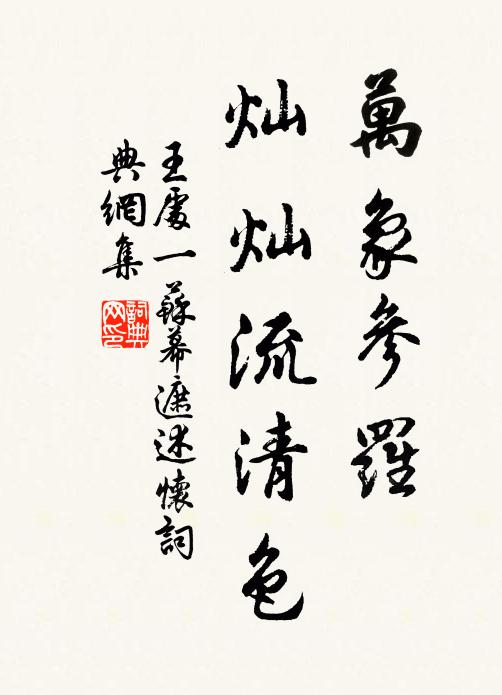 萬象參羅
灿灿流清色
王處一蘇幕遮述懷詞
典網集
詞典
网印